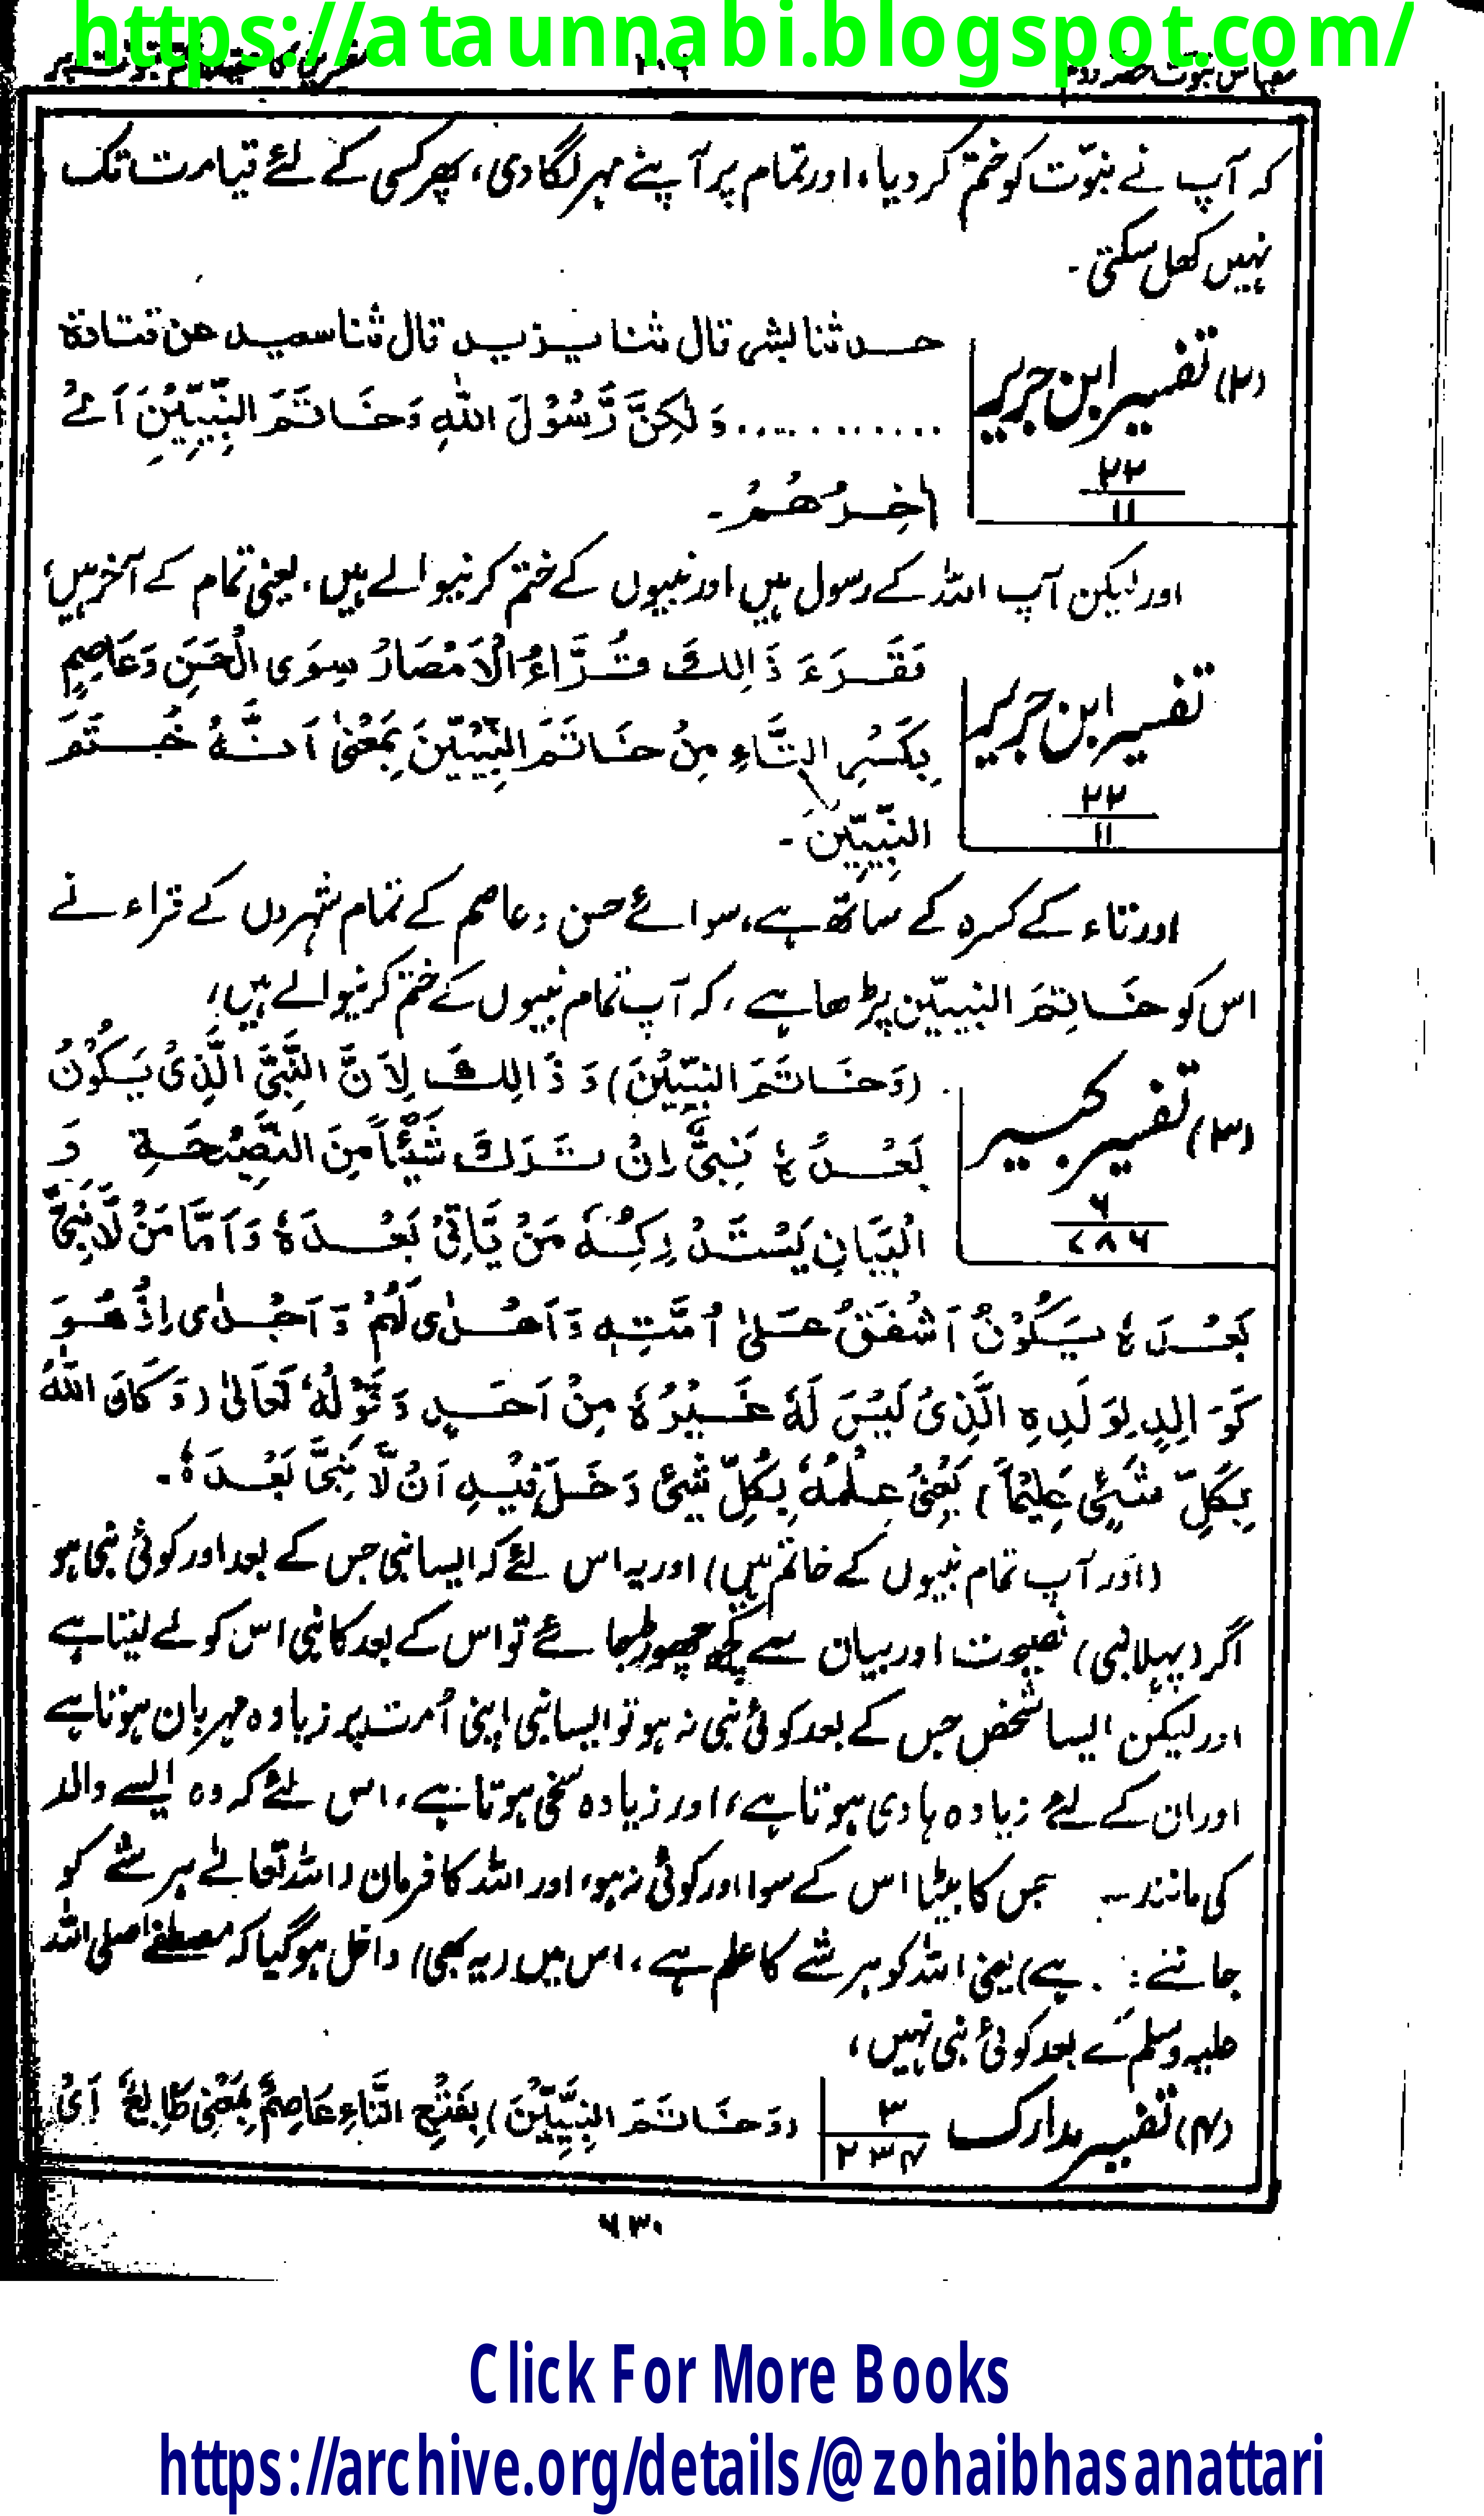 https://ataunnabi.blogspot.com/
مقیاس نبوت حصہ دوم
کہ آپ نے نبوّت کو ختم کر دیا، اور تمام پر آپنے مہر لگا دی، پھر کسی کے لئے قیامت تک
نہیں کھل سکتی۔
(۲) تفسیر ابن جریر ۲۲/۱۱
حدثنا بشر قال ثنا یزید قال ثنا سعید عن قتادۃ
............ وَلٰکِنَّ رَّسُوْلَ اللّٰہِ وَخَاتَمَ النَّبِیِّیْنَ آئے
اٰخِرُھُمْ۔
اور لیکن آپ اللہ کے رسول ہیں اور نبیوں کے ختم کرنیوالے ہیں، یعنی تمام کے آخر ہیں،
تفسیر ابن جریر ۲۲/۱۱
فَقَرَءَ ذَالِکَ قُرَّاءُ الْاَمْصَارُ سِوَی الْحَسَنَ وَعَاصِمٍ
بِکَسْرِ التَّاءِ مِنْ خَاتَمَ النَّبِیِّیْنَ بِمَعْنٰی اَنَّہُ خُتَمَ
النَّبِیِّیْنَ۔
اور تاء کے کسرہ کے ساتھ ہے، سوائے حسن و عاصم کے تمام شہروں کے قراء نے
اس کو خَاتِمَ النبیّین پڑھا ہے، کہ آپ تمام نبیوں کے ختم کرنیوالے ہیں،
(۳) تفسیر کبیر ۶/۷۸۶
(وَخَاتَمَ النَّبِیِّیْنَ) وَ ذَالِکَ لِاَنَّ النَّبِیَّ الَّذِیْ یَکُوْنُ
بَعْدَہٗ نَبِیٌّ اِنْ تَرَکَ شَیْئًا مِنَ النَّصِیْحَۃِ وَ
الْبَیَانِ یَسْتَدْرِکُہٗ مَنْ یَّاتِیْ بَعْدَہٗ وَاَمَّا مَنْ لَّا نَبِیَّ
بَعْدَہٗ یَکُوْنُ اَشْفَقُ عَلٰی اُمَّتِہٖ وَاَھْدٰی لَھُمْ وَاَجْدٰی اِذْ ھُوَ
کَوَالِدٍ لِوَلَدِہِ الَّذِیْ لَیْسَ لَہٗ غَیْرُہٗ مِنْ اَحَدٍ وَقَوْلُہٗ تَعَالٰی (وَکَانَ اللّٰہُ
بِکُلِّ شَیْئٍ عَلِیْمًا) یَعْنِیْ عِلْمُہٗ بِکُلِّ شَیْئٍ دَخَلَ فِیْہِ اَنْ لَّا نَبِیَّ بَعْدَہٗ۔
(اور آپ تمام نبیوں کے خاتم ہیں) اور یہ اس لئے کہ ایسا نبی جس کے بعد اور کوئی نبی ہو
اگر (پہلا نبی) نصیحت اور بیان سے کچھ چھوڑ جائے تو اس کے بعد کا نبی اس کو لے لیتا ہے
اور لیکن ایسا شخص جس کے بعد کوئی نبی نہ ہو تو ایسا نبی اپنی اُمت پر زیادہ مہربان ہوتا ہے
اور ان کے لئے زیادہ ہادی ہوتا ہے، اور زیادہ سخی ہوتا ہے، اس لئے کہ وہ ایسے والد
کی مانند ہے جس کا بیٹا اس کے سوا اور کوئی نہ ہو، اور اللہ کا فرمان (اللہ تعالےٰ ہر شے کو
جاننے ہے) یعنی اللہ کو ہر شے کا علم ہے، اس میں (یہ بھی) داخل ہو گیا کہ مصطفےٰ صلی اللہ
علیہ وسلم کے بعد کوئی نبی نہیں،
(۴) تفسیر مدارک ۳/۲۳۴ (وَخَاتَمَ النَّبِیِّیْنَ) بِفَتْحِ التَّاءِ عَاصِمٌ بِمَعْنٰی طَابِعٌ اَیْ
۶۳۰
Click For More Books
https://archive.org/details/@zohaibhasanattari